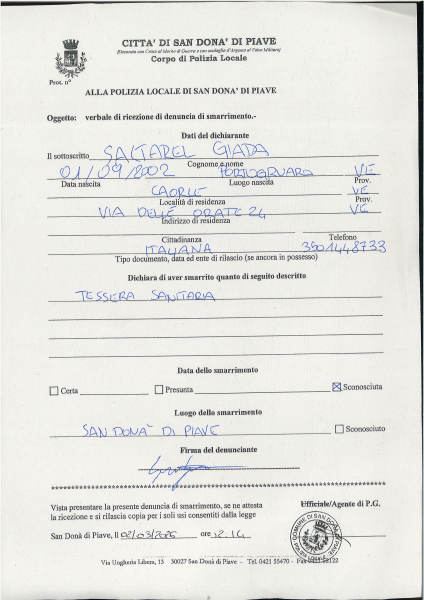 CITTA' DI SAN DONA' DI PIAVE
(Decorata con Croce al Merito di Guerra e con medaglia d'Argento al Valor Militare)
Corpo di Polizia Locale
Prot. n°
ALLA POLIZIA LOCALE DI SAN DONA' DI PIAVE
Oggetto: verbale di ricezione di denuncia di smarrimento.-
Dati del dichiarante
Il sottoscritto SALTAREL GIADA
Cognome e nome
01/09/2002 PORTOGRUARO VE
Data nascita Luogo nascita Prov.
CAORLE VE
Località di residenza Prov.
VIA DELLE ORATE 24 VE
Indirizzo di residenza
Cittadinanza Telefono
ITALIANA 3501448733
Tipo documento, data ed ente di rilascio (se ancora in possesso)
Dichiara di aver smarrito quanto di seguito descritto
TESSERA SANITARIA
Data dello smarrimento
Certa Presunta Sconosciuta
Luogo dello smarrimento
SAN DONA' DI PIAVE Sconosciuto
Firma del denunciante
Vista presentare la presente denuncia di smarrimento, se ne attesta
la ricezione e si rilascia copia per i soli usi consentiti dalla legge
Ufficiale/Agente di P.G.
San Donà di Piave, lì 02/03/2026 ore 12.14
Via Ungheria Libera, 15 30027 San Donà di Piave - Tel. 0421 55470 -